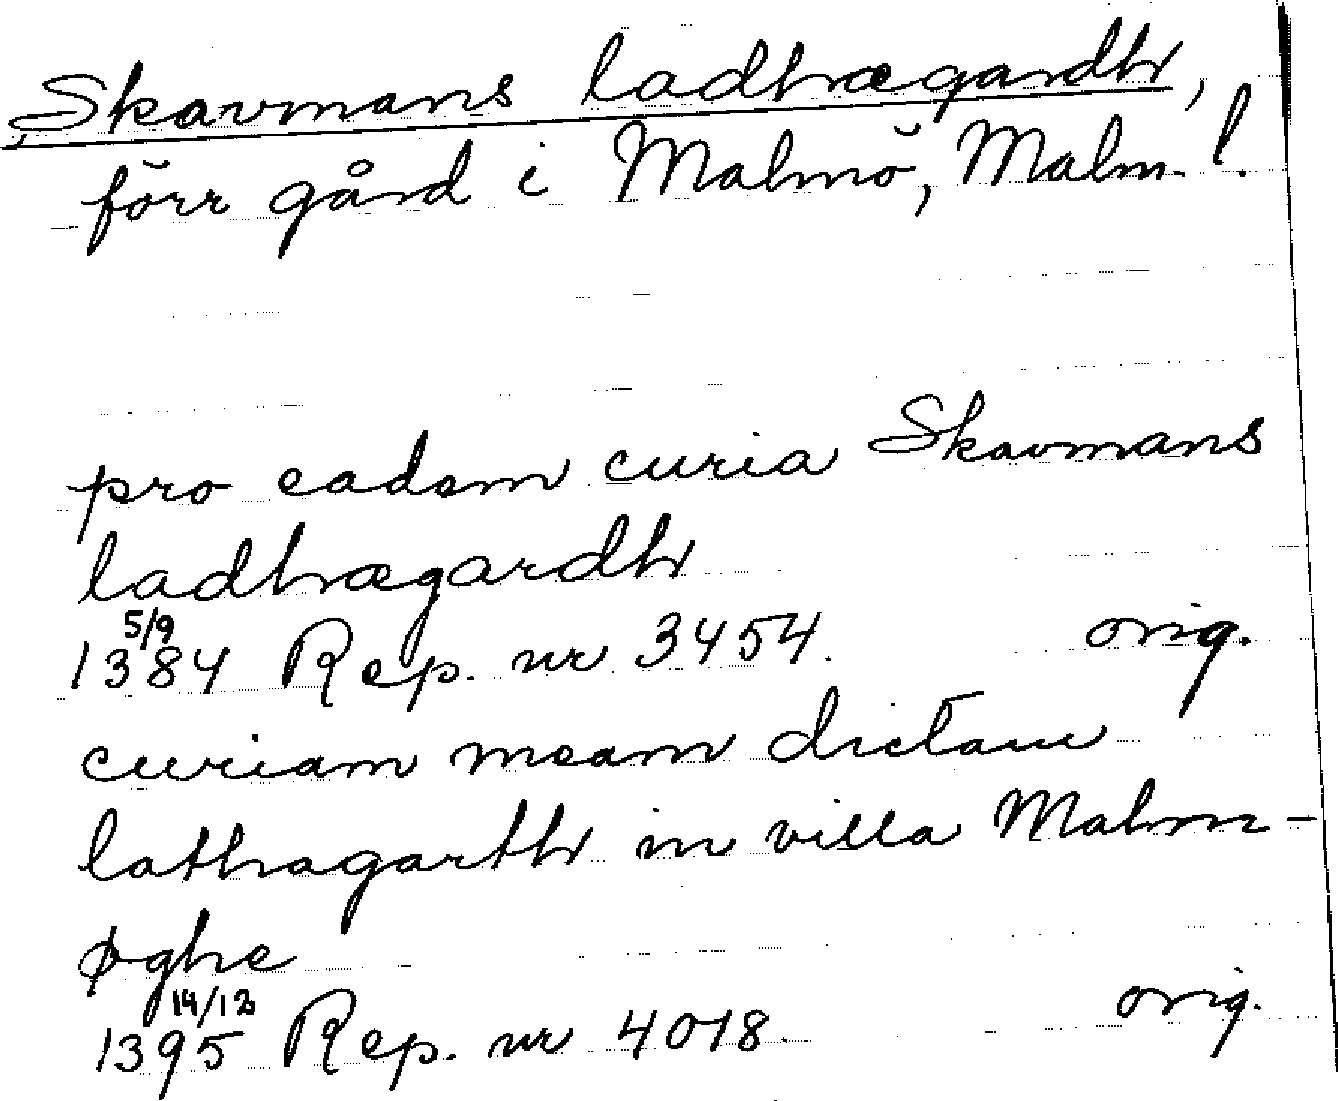 Skavmans ladhrægardh,
förr gård i Malmö, Malm. l.
pro eadem curia Skavmans
ladhrægardh
5/9
1384 Rep. nr 3454. orig.
curiam meam dictam
lathagarth in villa Malm-
øghe
14/12
1395 Rep. nr 4018. orig.